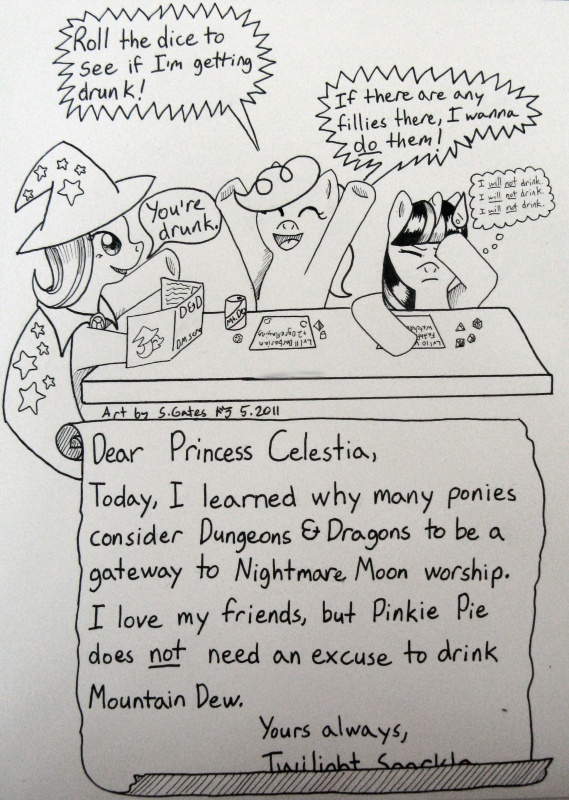 Roll the dice to
see if I'm getting
drunk!
If there are any
fillies there, I wanna
do them!
You're
drunk.
I will not drink.
I will not drink.
I will not drink.
D&D
Mt. Dew
Lvl 11 Barbarian
Lvl 10
Art by S.Gates 5.2011
Dear Princess Celestia,
Today, I learned why many ponies
consider Dungeons & Dragons to be a
gateway to Nightmare Moon worship.
I love my friends, but Pinkie Pie
does not need an excuse to drink
Mountain Dew.
Yours always,
Twilight Sparkle